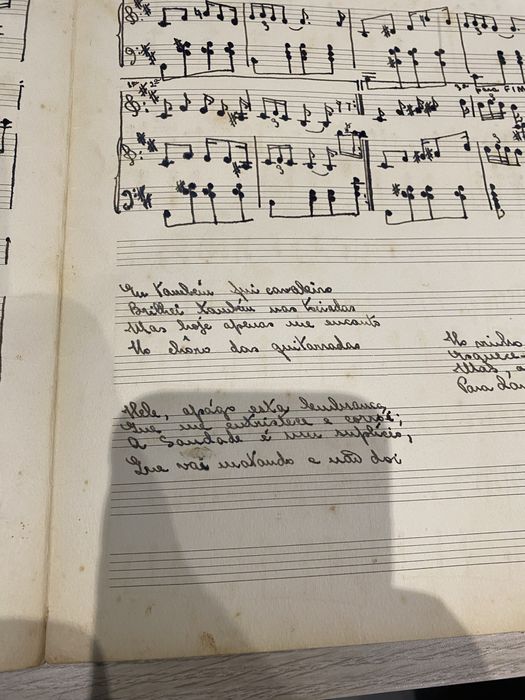 1ª 2ª
3ª Para FIM
Eu também fui cavaleiro
Brilhei também nas toiradas
Mas hoje apenas me encanta
No chôro das guitarradas
Nele, apágo esta lembrança
Que me entristece e corrói;
A Saudade é um suplício,
Que vai matando e não doi
No
Mas, a
Para